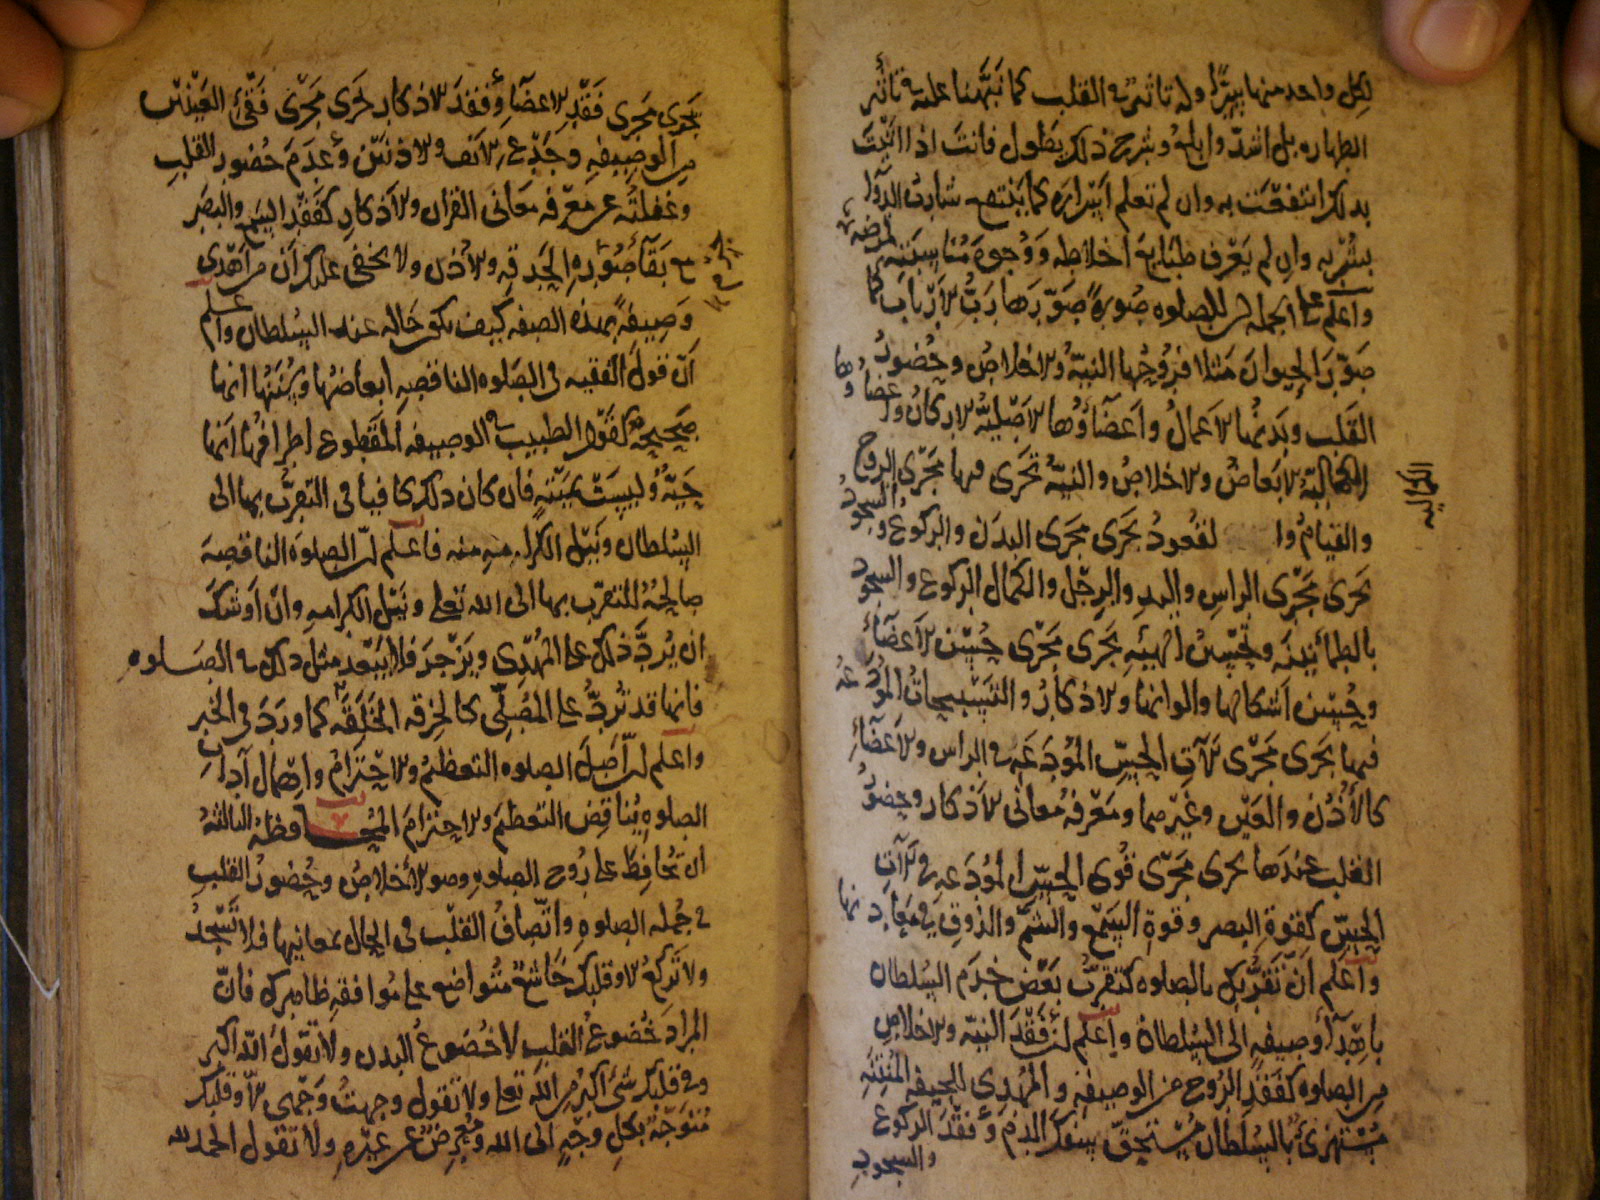 لكل واحد منها سرًّا وله تاثير في القلب كما نبهنا عليه في تاثير
الطهاره بل اشدّ وابلغ وشرح ذلك يطول فانت اذا اتيت
بذلك انتفعت به وان لم تعلم اسراره كما ينتفع شارب الدوآ
بشربه وان لم يعرف طبايع اخلاطه ووجوه مناسبته لمرضه
واعلم على الجمله ان للصلوه صورة صوّرها ربّ الارباب كما
صوّر الحيوان مثلا فروحها النيّة والاخلاص وحضور
القلب وبدنها الاعمال واعضآؤها الاصليّة الاركان واعضاوها
الكماليّة الابعاض والاخلاص والنيّة تجرى فيها مجرى الروح
الكماليه
والقيام وا لقعود يجرى مجرى البدن والركوع والسجود
تجرى مجرى الراس واليد والرجل واكمال الركوع والسجود
بالطمأنينه وتحسين الهيئه يجرى مجرى حسن الاعضآء
وحسن اشكالها والوانها والاذكار والتسبيحات المودعه
فيها تجرى مجرى آلات الحسّ المودعه في الراس والاعضآء
كالاذن والعين وغيرهما ومعرفة معانى الاذكار وحضور
القلب عندها يجرى مجرى قوى الحسّ المودعه في آلات
الحسّ كقوة البصر وقوة السمع والشمّ والذوق في معادنها
واعلم انّ تقرّبك بالصلوه كتقرّب بعض خدم السلطان
باهدآء وصيفة الى السلطان واعلم ان فقد النيّه والاخلاص
من الصلوه كفقد الروح من الوصيفه والمهدى للجيفه المنتنه
مستهزئ بالسلطان مستحقّ بسفك الدم وفقد الركوع
والسجود
يجرى مجرى فقد الاعضآء وفقد الاذكار يجرى مجرى فقئ العينين
من الوصيفه وجدع الانف والاذنين وعدم حضور القلب
وغفلته عن معرفه معانى القران والاذكار كفقد السمع والبصر
مع بقآء صورة الحدقه والاذن ولا يخفى عليك ان من اهدى
وصيفة بهذه الصفه كيف يكون حاله عند السلطان واعلم
انّ قول الفقيه في الصلوه الناقصه ابعاضها وسننها انها
صحيحة كقول الطبيب في الوصيفه المقطوع اطرافها انها
حيّة وليست بميّتة فان كان ذلك كافيا في التقرّب بها الى
السلطان ونيل الكرامه منه فاعلم ان الصلوة الناقصة
صالحة للتقرّب بها الى الله تعلى ونيل الكرامه وان اوشك
ان يُردّ ذلك على المهدى ويزجر فلا يبعد مثل ذلك في الصلوه
فانها قد تُردّ على المصلّى كالخرقه الخلقه كما ورد فى الخبر
واعلم ان اصل الصلوه التعظيم والاحترام واهمال آداب
الصلوه يناقض التعظيم والاحترام المحافظة الثالثة
ان تحافظ على روح الصلوه وهو الاخلاص وحضور القلب
في جمله الصلوه واتّصاف القلب فى الحال بمعانيها فلا تسجد
ولا تركع الا وقلبك خاشع متواضع على موافقه ظاهرك فانّ
المراد خضوع القلب لا خضوع البدن ولا تقول الله اكبر
وفى قلبك شئ اكبر من الله تعلى ولا تقول وجهت وجهى الا وقلبك
متوجّه بكل وجه الى الله ومعرض عن غيره ولا تقول الحمد لله